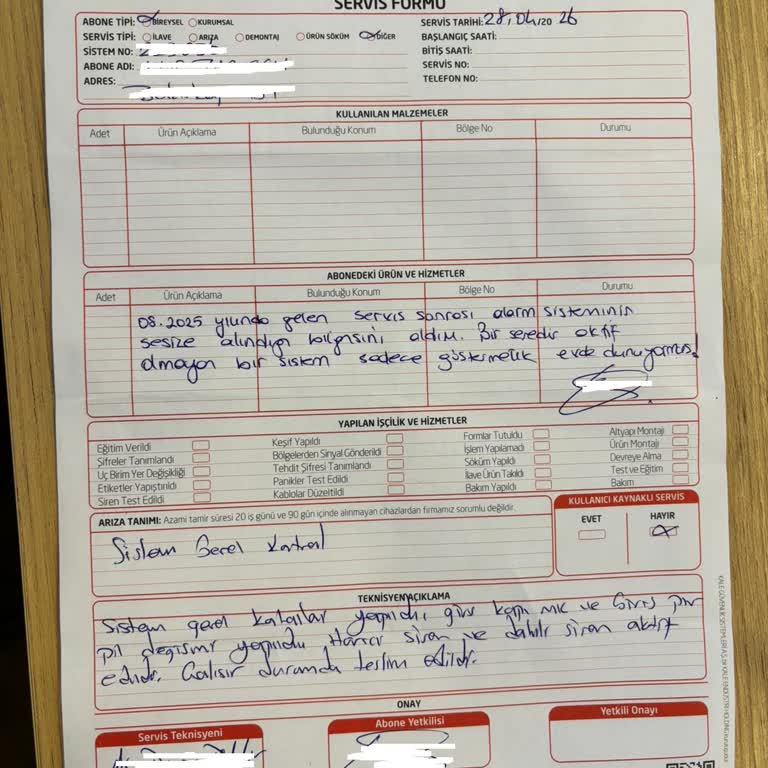 SERVİS FORMU
ABONE TİPİ: BİREYSEL KURUMSAL
SERVİS TARİHİ: 28/04/20 26
SERVİS TİPİ: İLAVE ARIZA DEMONTAJ ÜRÜN SÖKÜM DİĞER
BAŞLANGIÇ SAATİ:
SİSTEM NO:
BİTİŞ SAATİ:
ABONE ADI:
SERVİS NO:
ADRES:
TELEFON NO:
KULLANILAN MALZEMELER
Adet Ürün Açıklama Bulunduğu Konum Bölge No Durumu
ABONEDEKİ ÜRÜN VE HİZMETLER
Adet Ürün Açıklama Bulunduğu Konum Bölge No Durumu
08.2025 yılında gelen servis sonrası alarm sisteminin
sesize alındığı bilgisini aldım. Bir senedir aktif
olmayan bir sistem sadece göstermelik evde duruyormuş!
YAPILAN İŞÇİLİK VE HİZMETLER
Eğitim Verildi Keşif Yapıldı Formlar Tutuldu Altyapı Montajı
Şifreler Tanımlandı Bölgelerden Sinyal Gönderildi İşlem Yapılamadı Ürün Montajı
Uç Birim Yer Değişikliği Tehdit Şifresi Tanımlandı Söküm Yapıldı Devreye Alma
Etiketler Yapıştırıldı Panikler Test Edildi İlave Ürün Takıldı Test ve Eğitim
Siren Test Edildi Kablolar Düzeltildi Bakım Yapıldı Bakım
ARIZA TANIMI: Azami tamir süresi 20 iş günü ve 90 gün içinde alınmayan cihazlardan firmamız sorumlu değildir.
Sistem Genel Kontrol
KULLANICI KAYNAKLI SERVİS
EVET HAYIR
TEKNİSYEN AÇIKLAMA
Sistem genel kontrolleri yapıldı, giriş kapı mk ve Giriş pır
pil değişimi yapıldı Harici siren ve dahili siren aktif
edildi. Çalışır durumda teslim edildi.
ONAY
Servis Teknisyeni Abone Yetkilisi Yetkili Onayı